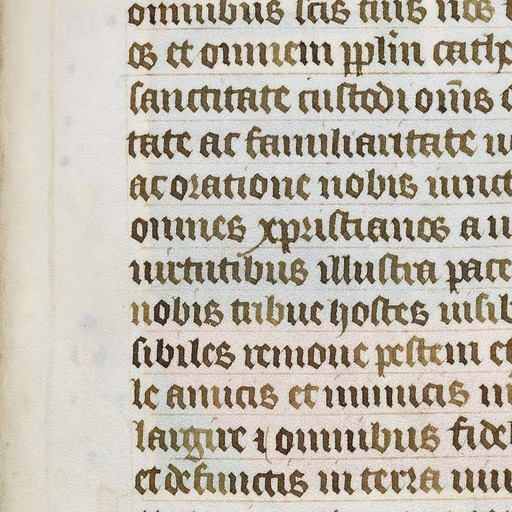 omnibus scis tuis nos
os et omnem pplm cath
sanctitate custodi om̄s
tate ac familiaritate
ac oratione nobis iunct
omnes xpristianos a
uirtutibus illustra pace
nobis tribue hostes uisib
sibiles remoue pestem et
le amicis et inimicis
largire ⁊ omnibus fidel
et defunctis in terra